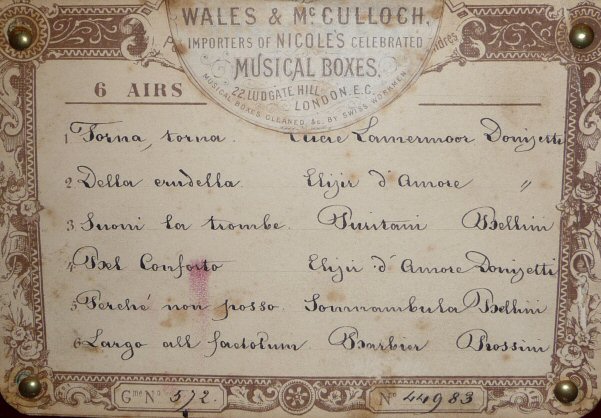 WALES & McCULLOCH,
IMPORTERS OF NICOLE'S CELEBRATED
MUSICAL BOXES,
22 LUDGATE HILL
LONDON, E.C.
MUSICAL BOXES CLEANED, &c. BY SWISS WORKMEN
6 AIRS
1 Torna, torna. Lucie Lamermoor Donizetti
2 Della crudella. Elizir d'Amore "
3 Suoni la trombe. Puritani Bellini
4 Bel Conforto Elizir d'Amore Donizetti
5 Perché non posso. Sonnambula Bellini
6 Largo all factotum Barbier Rossini
Gme No. 572. No. 44983